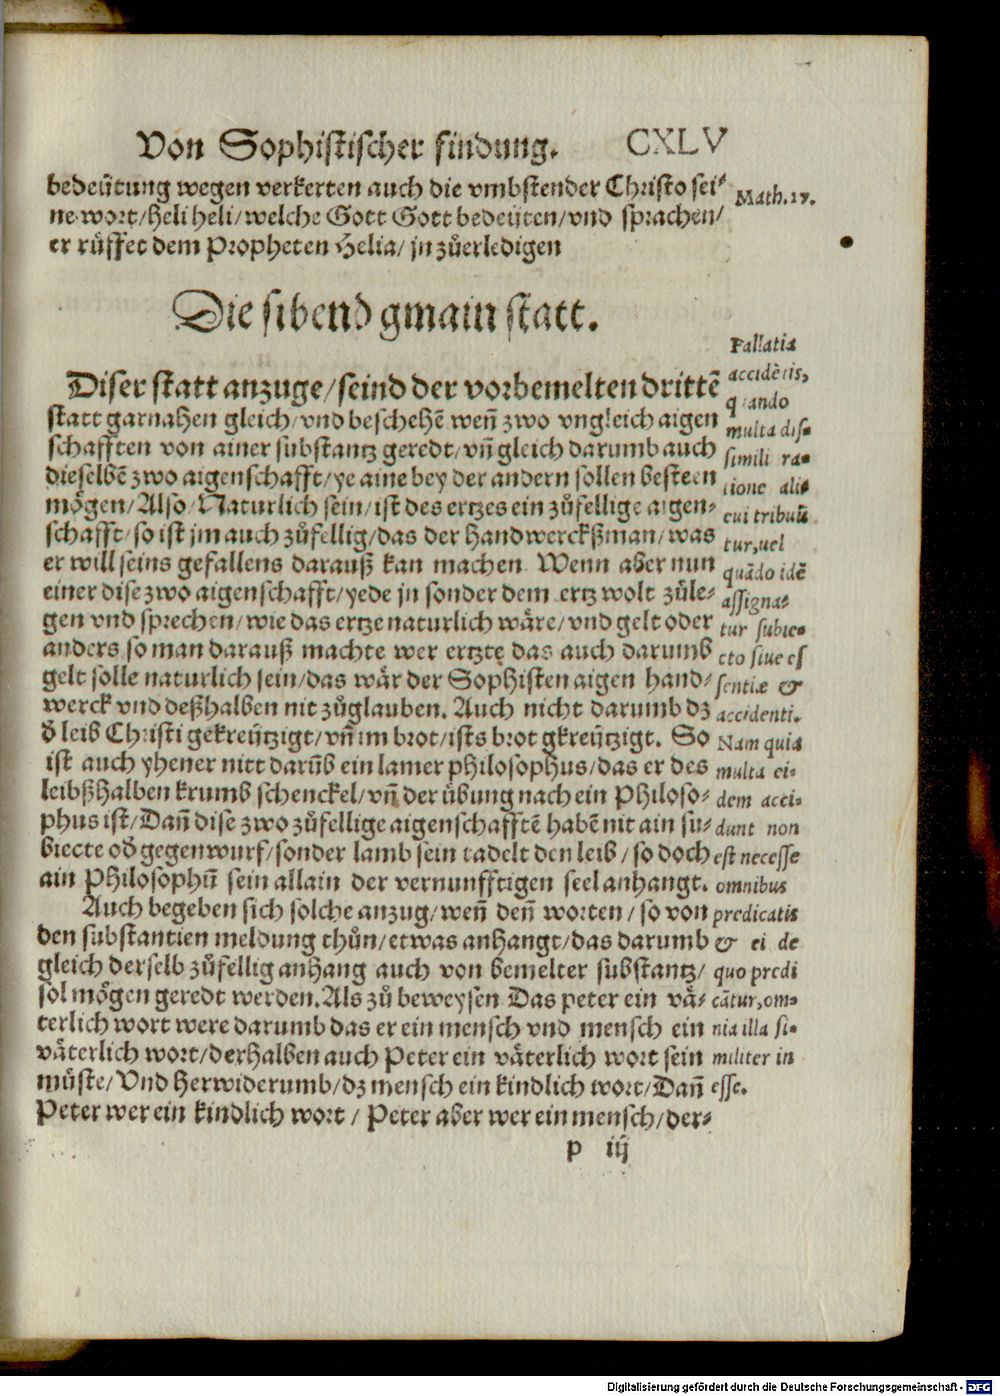 Von Sophistischer findung. CXLV
bedeütung wegen verkerten auch die vmbstender Christo sei⸗
ne wort/heli heli/welche Gott Gott bedeüten/vnd sprachen/
er rüffet dem Propheten Helia/ jn zůerledigen
Math. 27.
Die sibend gmain statt.
Diser statt anzuge/seind der vorbemelten drittẽ
statt garnahen gleich/vnd beschehẽ weñ zwo vngleich aigen
schafften von ainer substantz geredt/vñ gleich darumb auch
dieselbẽ zwo aigenschafft/ye aine bey der andern sollen besteen
mögen/Also/Naturlich sein/ist des ertzes ein zůfellige aigen⸗
schafft/so ist jm auch zůfellig/das der handwerckßman/was
er will seins gefallens darauß kan machen Wenn aber nun
einer dise zwo aigenschafft/yede jn sonder dem ertz wolt zůle⸗
gen vnd sprechen/wie das ertze naturlich wäre/vnd gelt oder
anders so man darauß machte wer ertzte das auch darumb
gelt solle naturlich sein/das wär der Sophisten aigen hand⸗
werck vnd deßhalben nit zůglauben. Auch nicht darumb dz
d̕ leib Christi gekreützigt/vñ im brot/ists brot gkreützigt. So
ist auch yhener nitt darũb ein lamer philosophus/das er des
leibßhalben krumb schenckel/vñ der übung nach ein Philoso⸗
phus ist/Dañ dise zwo zůfellige aigenschafftẽ habẽ nit ain su⸗
biecte od̕ gegenwurf/sonder lamb sein tadelt den leib/so doch
ain Philosophũ sein allain der vernunfftigen seel anhangt.
Auch begeben sich solche anzug/weñ deñ worten/so von
den substantien meldung thůn/etwas anhangt/das darumb
gleich derselb zůfellig anhang auch von bemelter substantz/
sol mögen geredt werden. Als zů beweysen Das peter ein vä⸗
terlich wort were darumb das er ein mensch vnd mensch ein
väterlich wort/derhalben auch Peter ein väterlich wort sein
müste/Vnd herwiderumb/dz mensch ein kindlich wort/Dañ
Peter wer ein kindlich wort/Peter aber wer ein mensch/der⸗
Fallatia
accidẽtis,
quando
multa dis⸗
simili ra⸗
tione ali⸗
cui tribuũ
tur, uel
quãdo idẽ
assigna⸗
tur subie⸗
cto siue es
sentiæ &
accidenti.
Nam quia
multa ei⸗
dem acci⸗
dunt non
est necesse
omnibus
predicatis
& ei de
quo predi
cãtur, om⸗
nia illa si⸗
militer in
esse.
p iij
Digitalisierung gefördert durch die Deutsche Forschungsgemeinschaft - DFG